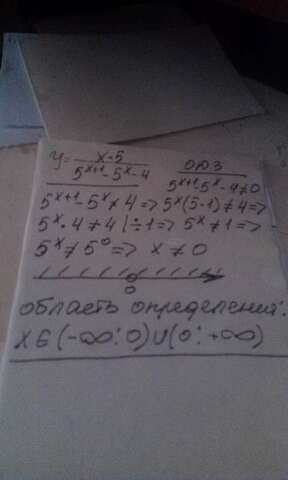 y = x-5 / 5^{x+1} - 5^x - 4 ОДЗ
5^{x+1} - 5^x - 4 ≠ 0
5^{x+1} - 5^x ≠ 4 => 5^x(5-1) ≠ 4 =>
5^x · 4 ≠ 4 | ÷ 1 => 5^x ≠ 1 =>
5^x ≠ 5^0 => x ≠ 0
0
область определений:
X Є (-∞; 0) U (0; +∞)